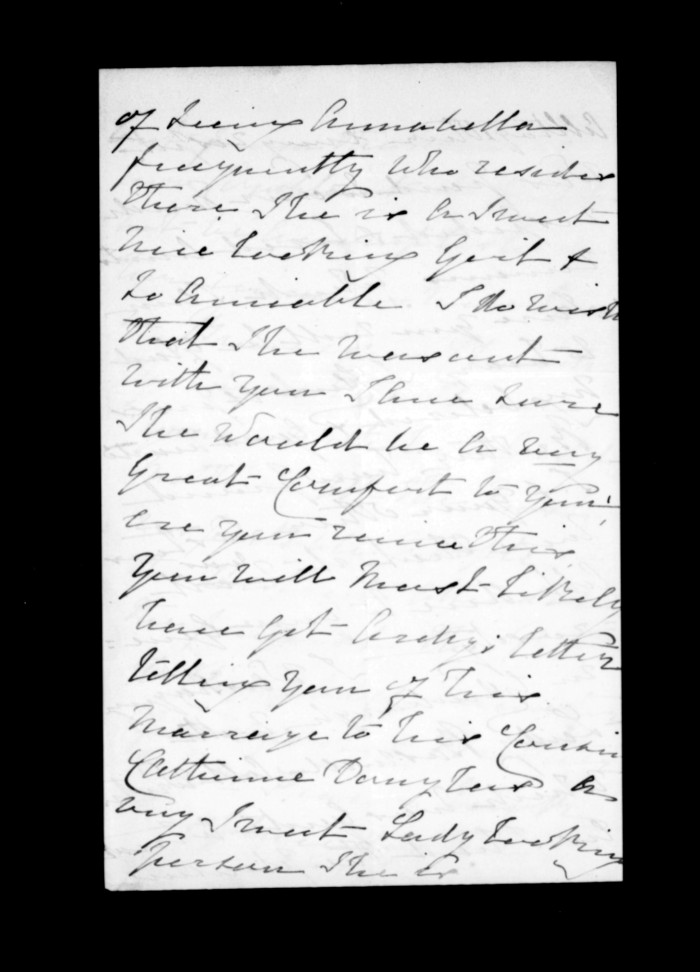 of Seeing Annabella
frequently who resides
there She is a Sweet
nice Looking Girl &
so Amiable I do wish
that She was out
with you I have Sure
She would be a very
great Comfort to you;
ere you receive this
you will Most Likely
have Got Archy's letter
telling you of his
Marriage to his Cousin
Catherine Douglas a
very Sweet Lady Looking
person She is